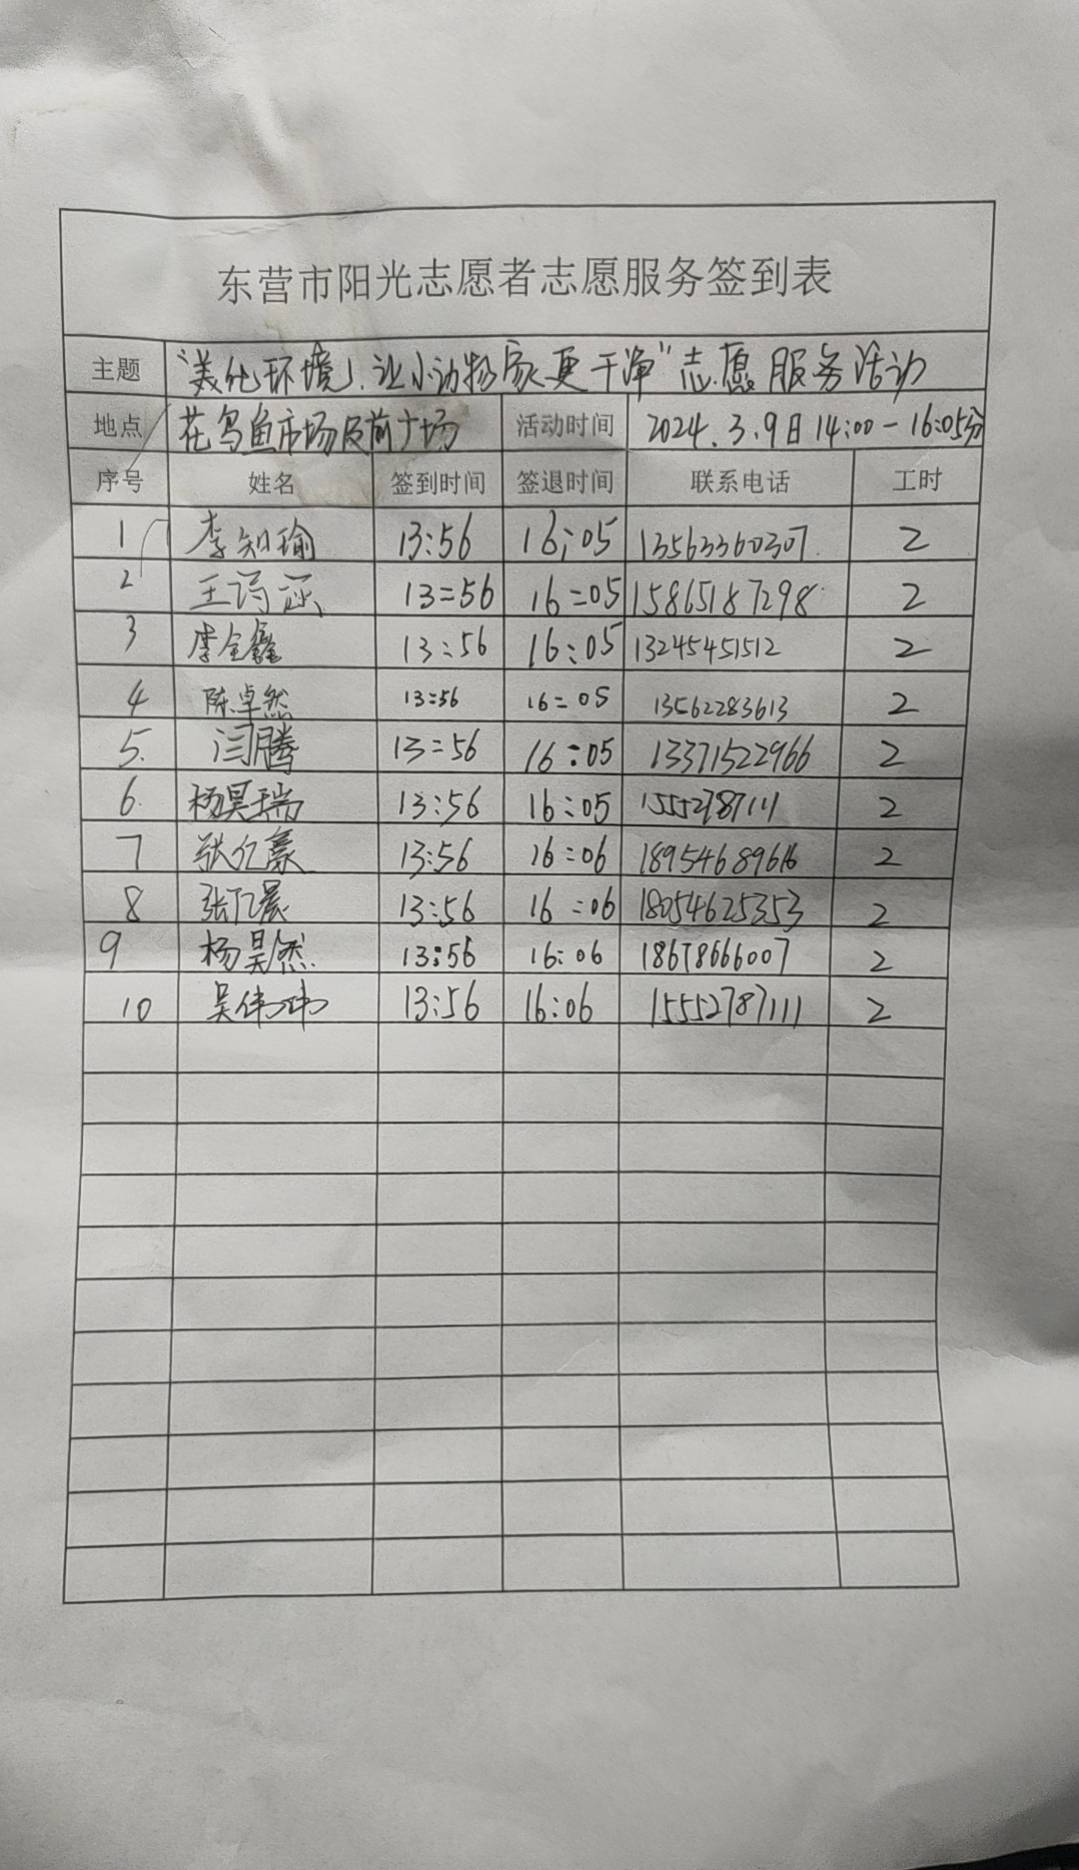 东营市阳光志愿者志愿服务签到表
主题 “美化环境，让小动物家更干净”志愿服务活动
地点 花鸟鱼市场及前广场 活动时间 2024.3.9日14:00-16:05分
序号 姓名 签到时间 签退时间 联系电话 工时
1 李知瑜 13:56 16:05 13563360307 2
2 王诗涵 13:56 16:05 15865187298 2
3 李金鑫 13:56 16:05 13245451512 2
4 陈卓然 13:56 16:05 13562283613 2
5. 闫腾 13:56 16:05 13371522966 2
6. 杨昊瑞 13:56 16:05 15552787111 2
7 张亿豪 13:56 16:06 2
8 张亿晨 13:56 16:06 18054625353 2
9 杨昊然. 13:56 16:06 18678666007 2
10 吴伟 13:56 16:06 15552787111 2